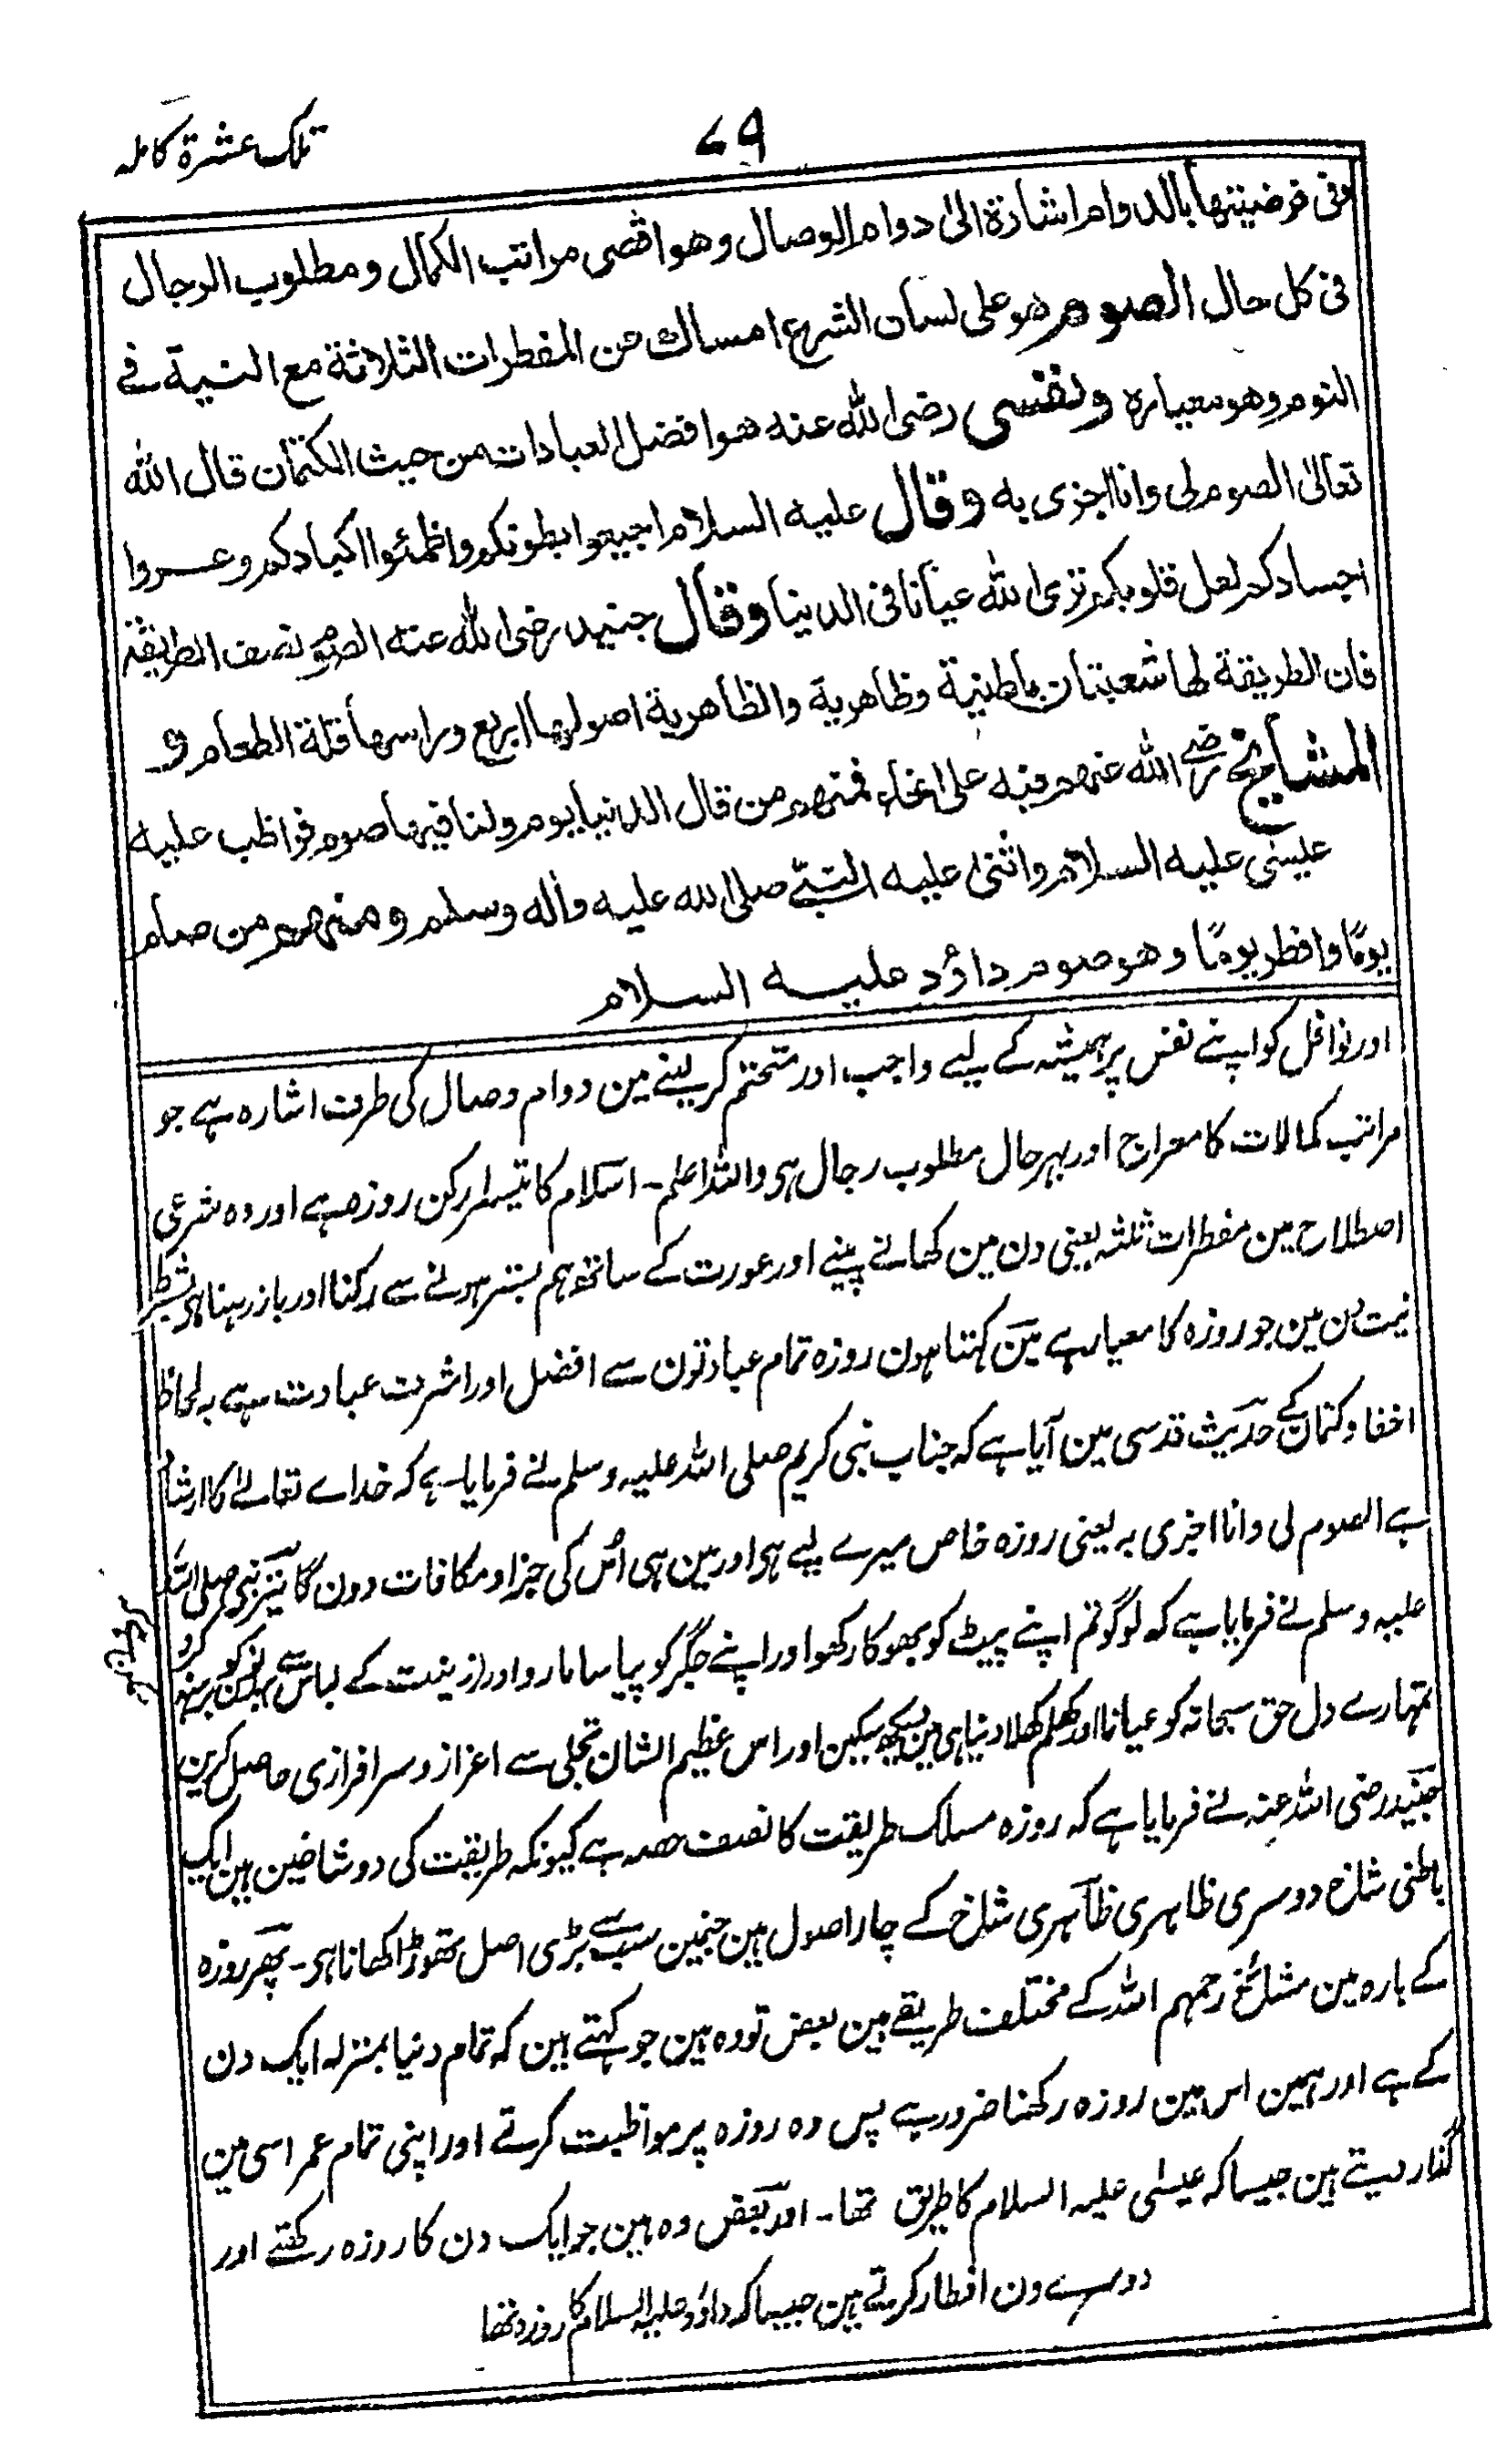 تلک عشرة کاملہ
۷۹
وفی فرضیتہا بالدوام اشارة الی دوام الوصال وھو اقصی مراتب الکمال ومطلوب الرجال
فی کل حال الصوم ھو علی لسان الشرع امساك عن المفطرات الثلاثة مع النیة فے
الیوم وھو معیارہ ونفسی رضی اللہ عنہ ھو افضل العبادات من حیث الکتمان قال اللہ
تعالیٰ الصوم لی وانا اجزی بہ وقال علیہ السلام اجیعوا بطونکم واظمئوا اکبادکم وعروا
اجسادکم لعل قلوبکم تری اللہ عیانا فی الدنیا وقال جنید رضی اللہ عنہ الصوم نصف الطریقة
فان الطریقة لھا شعبتان باطنیة وظاھریة والظاھریة اصولھا اربع وراسھا قلة الطعام و
المشایخ رضے اللہ عنھم فیہ علی انحاء فمنھم من قال الدنیا یوم ولنا فیھا صوم فواظب علیہ
عیسٰی علیہ السلام واثنی علیہ النبی صلی اللہ علیہ وآلہ وسلم ومنھم من صام
یومًا وافطر یومًا وھو صوم داؤد علیہ السلام
اور نوافل کو اپنے نفس پر ہمیشہ کے لیے واجب اور متحتم کر لینے مین دوام وصال کی طرف اشارہ ہے جو
مراتب کمالات کا معراج اور بہر حال مطلوب رجال ہی واللہ اعلم ۔ اسلام کا تیسرا رکن روزہ ہے اور وہ شرعی
اصطلاح مین مفطرات ثلثہ یعنی دن مین کھانے پینے اور عورت کے ساتھ ہم بستر ہونے سے رکنا اور باز رہنا ہی بشرط
نیت دن مین جو روزہ کا معیار ہے مین کہتا ہون روزہ تمام عبادتون سے افضل اور اشرف عبادت ہے بہ لحاظ
اخفا وکتمان کے حدیث قدسی مین آیا ہے کہ جناب نبی کریم صلی اللہ علیہ وسلم نے فرمایا ہے کہ خداے تعالےٰ کا ارشاد
ہے الصوم لی وانا اجزی بہ یعنی روزہ خاص میرے لیے ہی اور مین ہی اُس کی جزا و مکافات دون گا نیز نبی صلی اللہ
علیہ وسلم نے فرمایا ہے کہ لوگو تم اپنے پیٹ کو بھوکا رکھو اور اپنے جگر کو پیاسا مارو اور زینت کے لباس سے بدن کو برہنہ کرو
تمہارے دل حق سبحانہ کو عیانا اور کھلم کھلا دنیا ہی مین دیکھ سکین اور اس عظیم الشان تجلی سے اعزاز و سرافرازی حاصل کرین
جنید رضی اللہ عنہ نے فرمایا ہے کہ روزہ مسلک طریقت کا نصف حصہ ہے کیونکہ طریقت کی دو شاخین ہین ایک
باطنی شاخ دوسری ظاہری ظاہری شاخ کے چار اصول ہین جنمین سب سے بڑی اصل تھوڑا کھانا ہی ۔ پھر روزہ
کے بارہ مین مشائخ رحمہم اللہ کے مختلف طریقے ہین بعض تو وہ ہین جو کہتے ہین کہ تمام دنیا بمنزلہ ایک دن
کے ہے اور ہمین اس مین روزہ رکھنا ضرور ہے پس وہ روزہ پر مواظبت کرتے اور اپنی تمام عمر اسی مین
گذار دیتے ہین جیسا کہ عیسٰی علیہ السلام کا طریق تھا ۔ اور بعض وہ ہین جو ایک دن کا روزہ رکھتے اور
دوسرے دن افطار کرتے ہین جیسا کہ داؤد علیہ السلام کا روزہ تھا